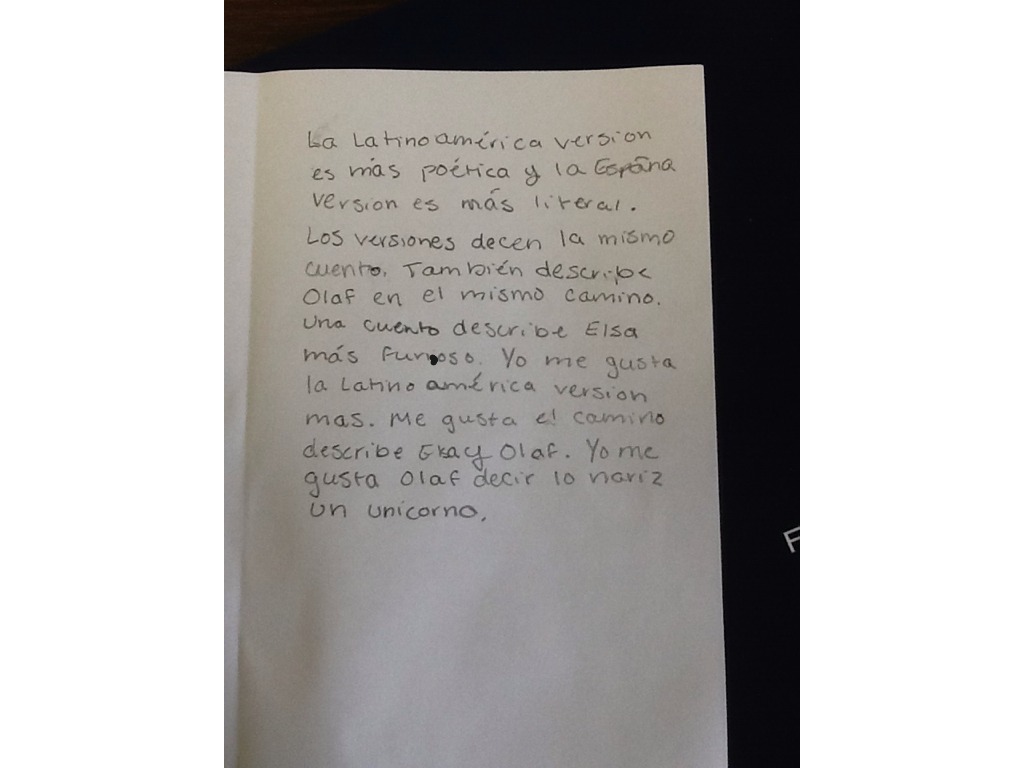 La Latinoamérica version
es más poética y la España
version es más literal.
Los versiones decen la mismo
cuento. También describe
Olaf en el mismo camino.
Una cuento describe Elsa
más furioso. Yo me gusta
la Latinoamérica version
mas. Me gusta el camino
describe y Olaf. Yo me
gusta Olaf decir lo nariz
un unicorno.
F